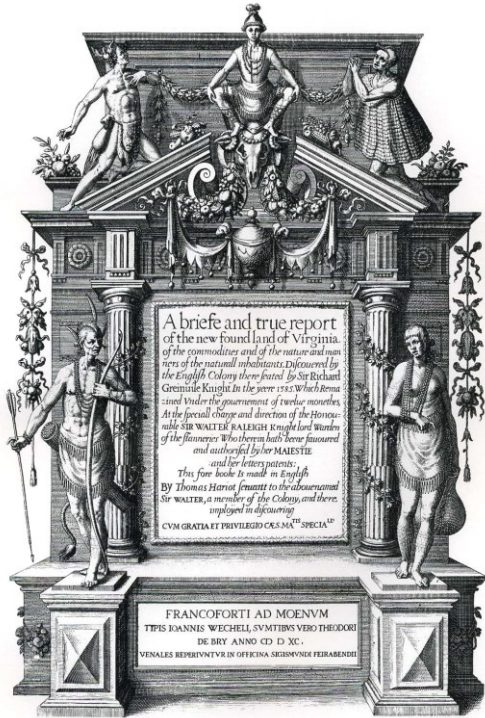 A briefe and true report
of the new found land of Virginia.
of the commodities and of the nature and man
ners of the naturall inhabitants. Discouered by
the Engliſh Colony there ſeated by Sir Richard
Greinuile Knight In the yeere 1585. Which Rema
ined Vnder the gouernement of twelue monethes,
At the ſpeciall charge and direction of the Honou-
rable SIR WALTER RALEIGH Knight lord Warden
of the ſtanneries Who therein hath beene fauoured
and authoriſed by her MAIESTIE
and her letters patents:
This fore booke Is made in Engliſh
BY Thomas Hariot ſeruant to the abouenamed
Sir WALTER, a member of the Colony, and there
imployed in diſcouering
CVM GRATIA ET PRIVILEGIO CÆS. MA.TIS SPECIA.LI
FRANCOFORTI AD MOENVM
TYPIS IOANNIS WECHELI, SVMTIBVS VERO THEODORI
DE BRY ANNO CIↃ IↃ XC.
VENALES REPERIVNTVR IN OFFICINA SIGISMVNDI FEIRABENDII